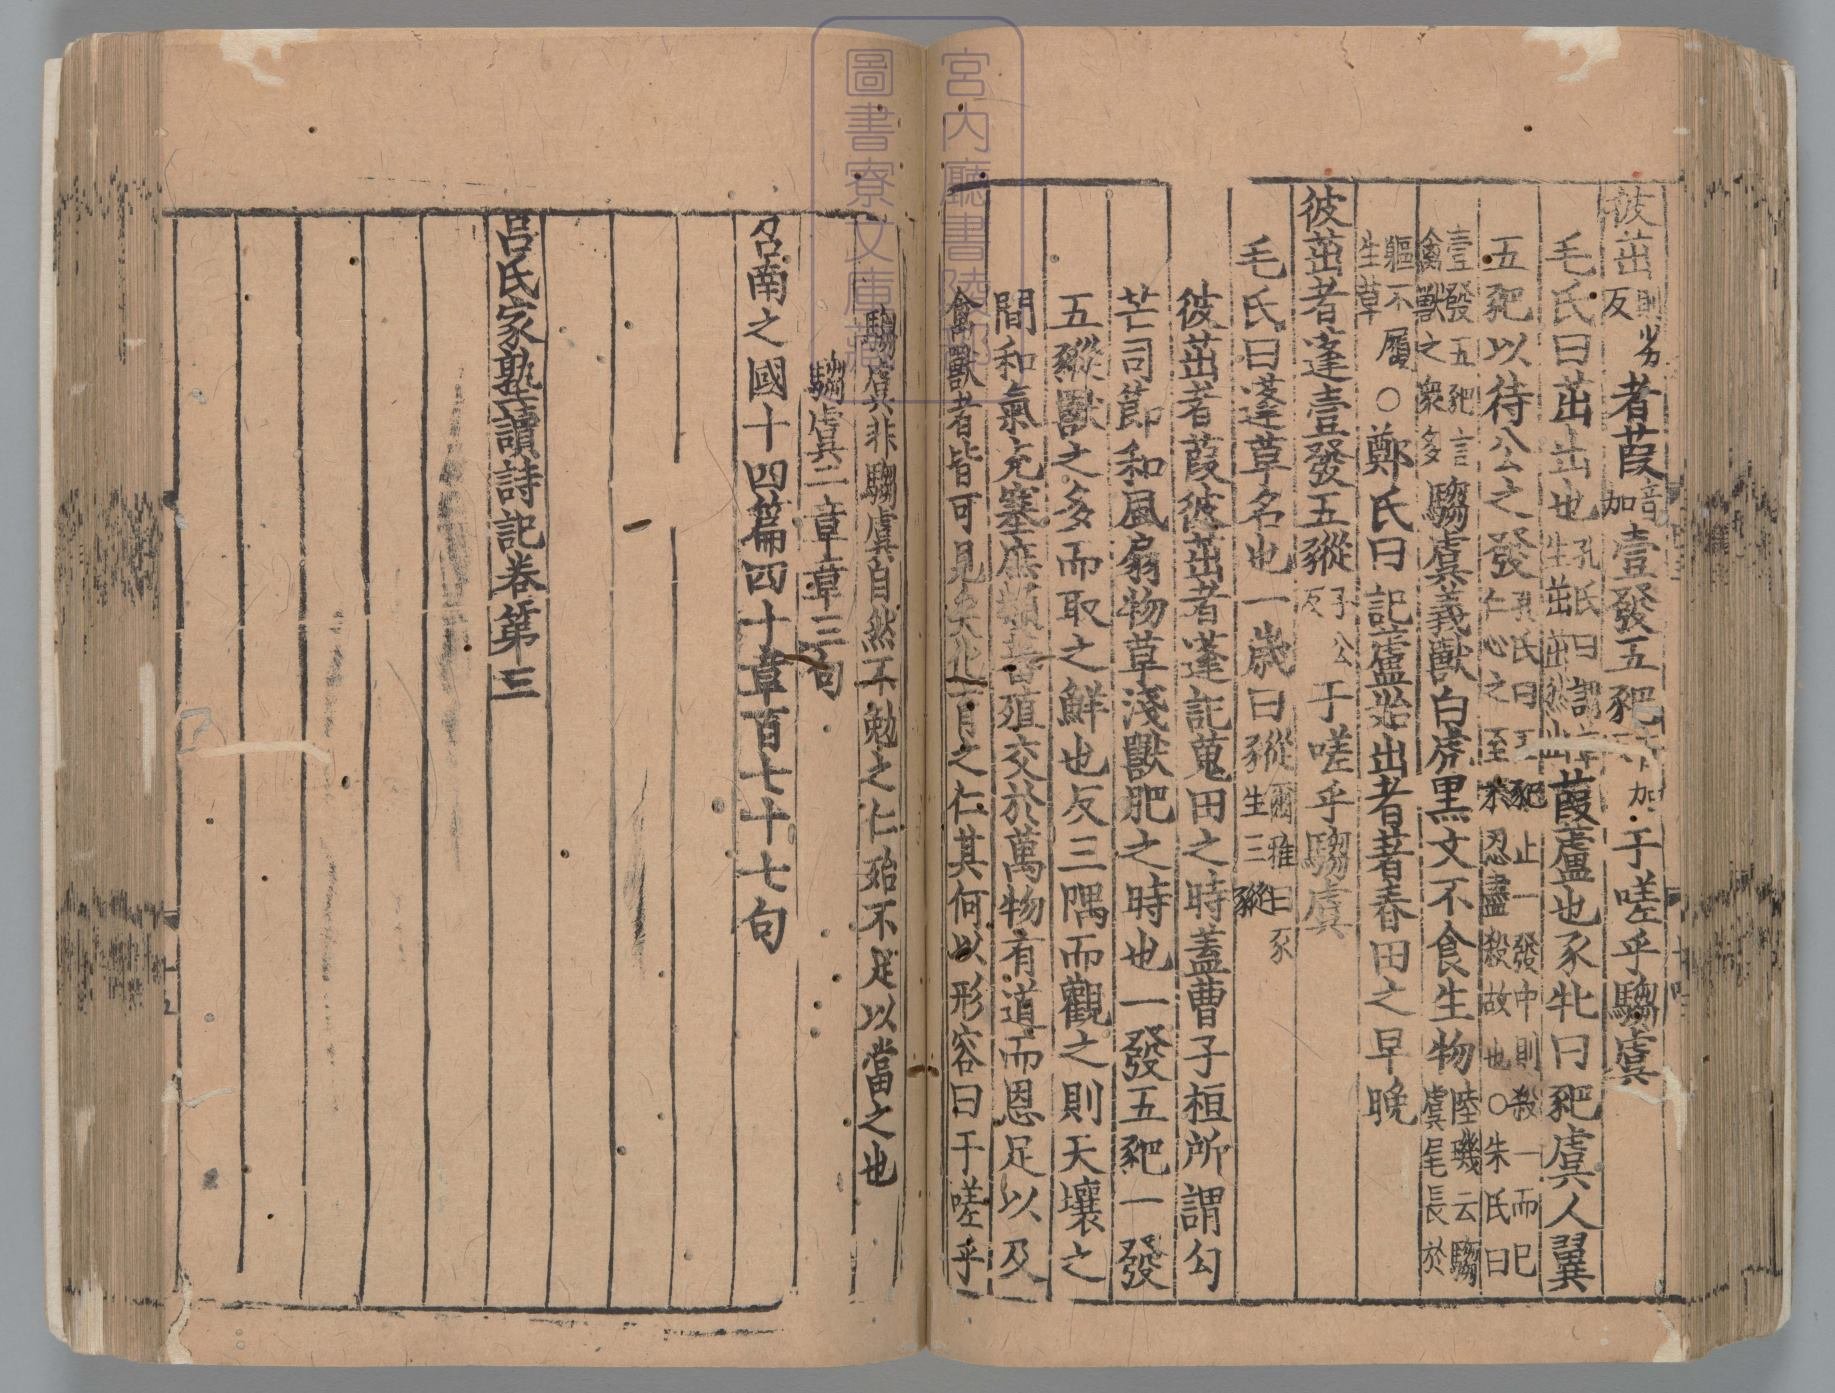 彼茁則劣反者葭音加壹發五豝百加于嗟乎騶虞
毛氏曰茁出也孔氏曰謂草生茁茁然出葭蘆也豕牝曰豝虞人翼
五豝以待公之發孔氏曰五豝止一發中則殺一而已仁心之至不忍盡殺故也○朱氏曰
壹發五豝言禽獸之衆多騶虞義獸白虎黒文不食生物陸璣云騶虞尾長於
軀不履生草○鄭氏曰記蘆始出者著春田之早晚
彼茁者蓬壹發五豵子公反于嗟乎騶虞
毛氏曰蓬草名也一歲曰豵爾雅曰豕生三豵
彼茁者葭彼茁者蓬記蒐田之時蓋曹子桓所謂勾
芒司節和風扇物草淺獸肥之時也一發五豝一發
五豵獸之多而取之鮮也反三隅而觀之則天壤之
間和氣充塞庶類蕃殖交於萬物有道而恩足以及
禽獸者皆可見矣化育之仁其何以形容曰于嗟乎
騶虞非騶虞自然不勉之仁殆不足以當之也
騶虞二章章三句
召南之國十四篇四十章百七十七句
呂氏家塾讀詩記卷第三
宮内廳書陵部
圖書寮文庫藏